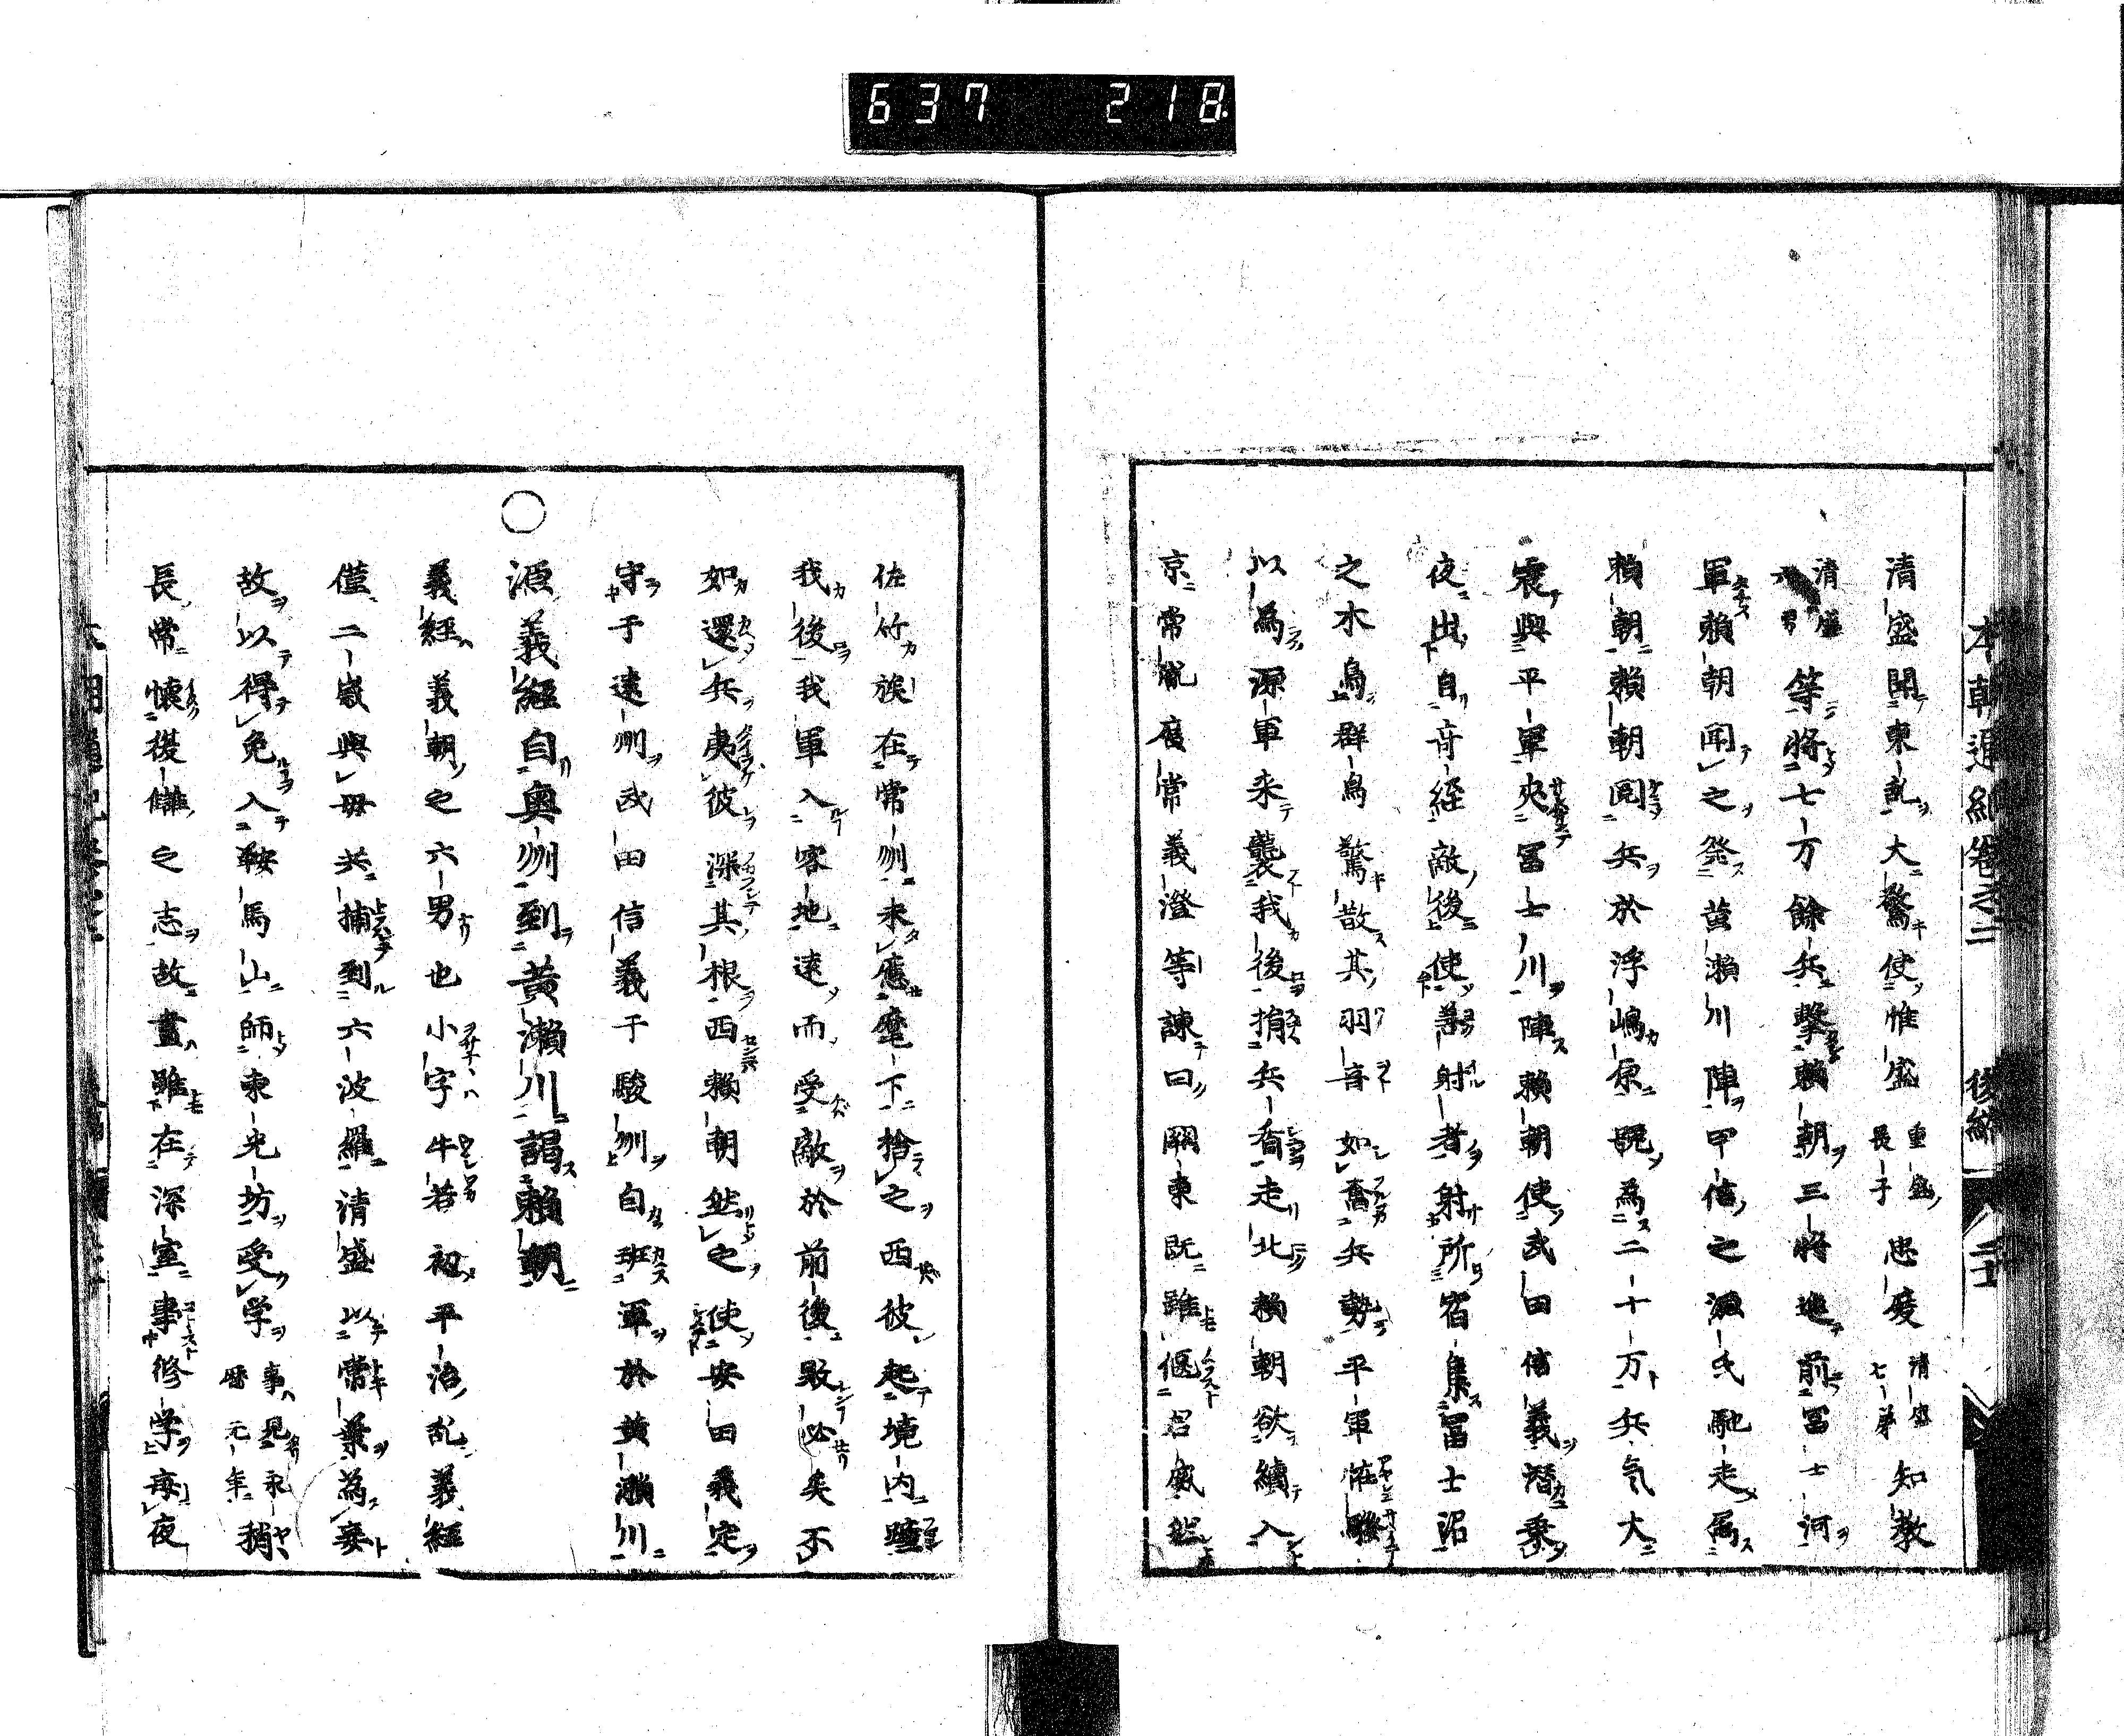 637 218
本朝通紀卷之二 後編 二十
清盛聞東乱大驚使惟盛 重盛長子 忠度 清盛七弟 知教
清盛男 等將七万餘兵擊賴朝三將進前冨士河
軍賴朝聞之発黄瀬川陣甲信之源氏馳走属
賴朝賴朝閲兵於浮嶋原既為二十万兵氣大
震與平軍夾冨士川陣賴朝使武田信義潜乗
夜出自音経敵後使善射者射所宿集冨士沼
之水鳥群鳥驚散其羽音如奮兵勢平軍恠騒
以為源軍来襲我後捐兵香走北賴朝欲續入
京常胤廣常義澄等諫曰関東既雖偃君威然
佐竹族在常州未應麾下捨之西彼起境内躡
我後我軍入客地遠而受敵於前後敗必矣不
如還兵夷彼深其根西賴朝然之使安田義定
守于遠州武田信義于駿州自班軍於黄瀬川
○源義経自奥州到黄瀬川謁賴朝
義経義朝之六男也小字牛若初平治乱義経
僅二歳與母共捕到六波羅清盛以常葉為妾
故以得免入鞍馬山師東光坊受学 事見永暦元年 稍
長常懐復讎之志故晝雖在深室事修学毎夜